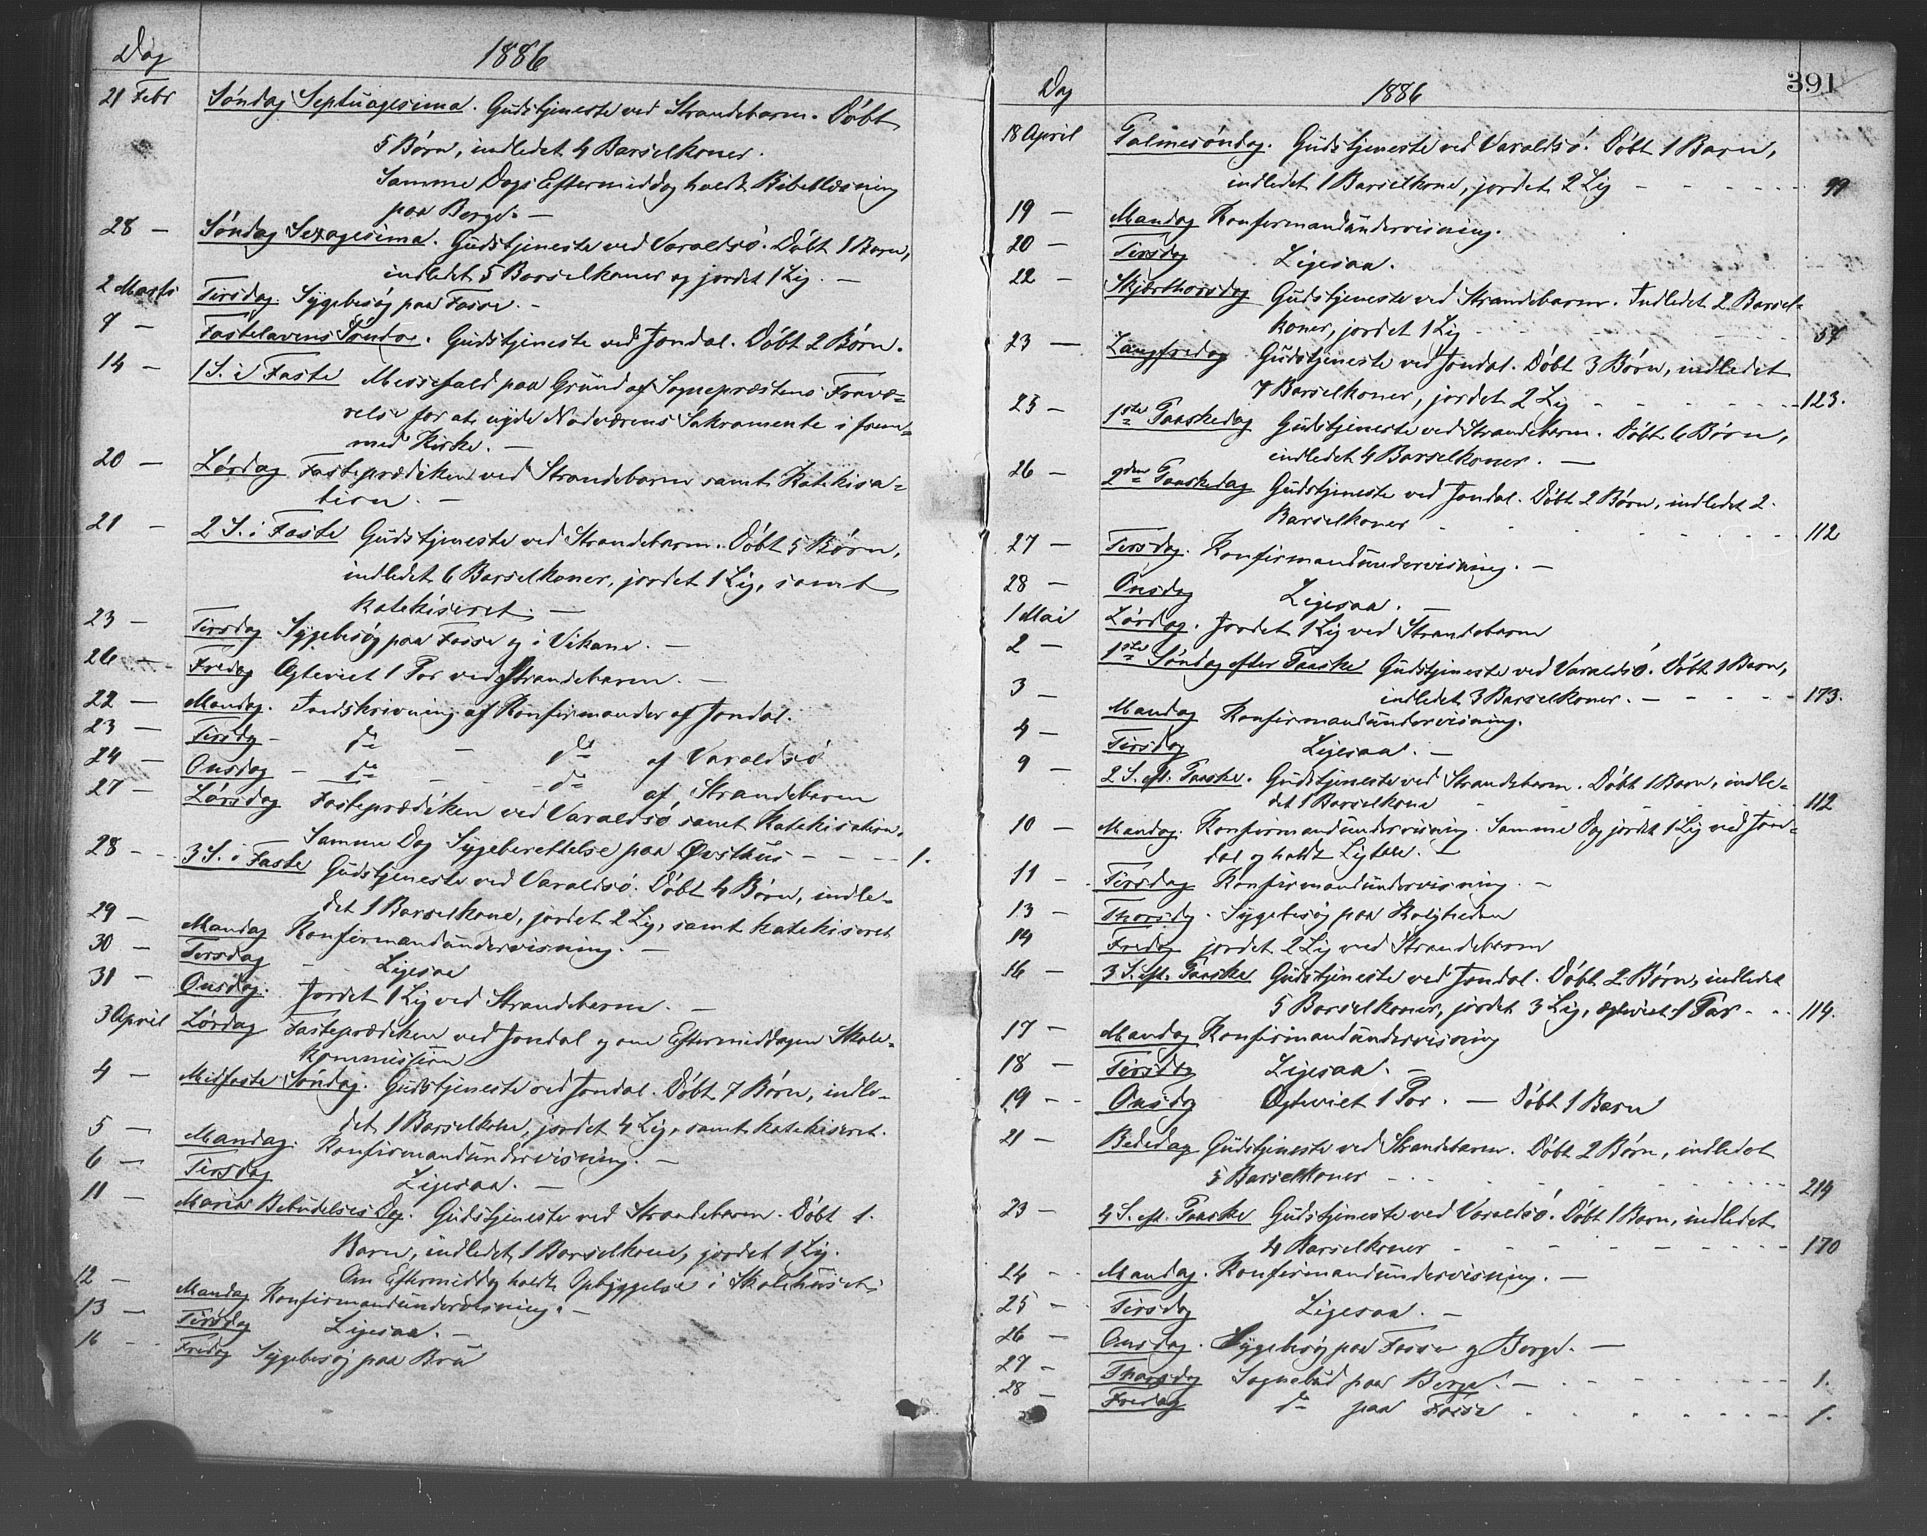 Dag
1886
21 Febr Søndag Septuagesima. Gudstjeneste ved Strandebarm. Døbt
5 Børn, indledet 4 Barselkoner.
Samme Dags Eftermiddag holdt Bibellæsning
paa Berge. —
28 — Søndag Sexagesima. Gudstjeneste ved Varaldsö. Døbt 1 Barn,
indledet 5 Barselkoner og jordet 1 Lig. —
2 Marts Tirsdag. Sygebesøg paa Fosse. —
7 — Fastelavens Søndag. Gudstjeneste ved Jondal. Døbt 2 Børn.
14 — 1 S. i Faste Messefald paa Grund af Sognepræstens Fravæ-
relse for at nyde Nadverens Sakramente i frem-
med Kirke. —
20 — Lørdag Fasteprædiken ved Strandebarm samt Katekisa-
tion. —
21 — 2 S. i Faste Gudstjeneste ved Strandebarm. Døbt 5 Børn,
indledet 6 Barselkoner, jordet 1 Lig, samt
katekiseret. —
23 — Tirsdag Sygebesøg paa Fosse og i Vikane. —
26 — Fredag Ægteviet 1 Par ved Strandebarm. —
22 — Mandag. Indskrivning af Konfirmander af Jondal.
23 — Tirsdag — do — do af Varaldsö
24 — Onsdag — do — do af Strandebarm
27 — Lørsdag Fasteprædiken ved Varaldsö samt Katekisation.
Samme Dag Sygeberettelse paa Østhus — — — — 1.
28 — 3 S. i Faste Gudstjeneste ved Varaldsö. Døbt 4 Børn, indle-
det 1 Barselkone, jordet 2 Lig, samt katekiseret
29 — Mandag Konfirmandundervisning. —
30 — Tirsdag — Ligesaa
31 — Onsdag. Jordet 1 Lig ved Strandebarm. —
3 April Lørdag Fasteprædiken ved Jondal og om Eftermiddagen Skole-
kommission
4 — Midfaste Søndag. Gudstjeneste ved Jondal. Døbt 7 Børn, indle-
det 1 Barselkone, jordet 4 Lig, samt katekiseret.
5 — Mandag. Konfirmandundervisning. —
6 — Tirsdag Ligesaa. —
11 — Mariæ Bebudelses Dag. Gudstjeneste ved Strandebarm. Døbt 1.
Barn, indledet 1 Barselkone, jordet 1 Lig.
Om Eftermiddag holdt Opbyggelse i Skolehuset
12 — Mandag Konfirmandundervisning. —
13 — Tirsdag Ligesaa. —
16 — Fredag Sygebesøg paa Bru
391
Dag
1886
18 April Palmesøndag. Gudstjeneste ved Varaldsö. Døbt 1 Barn,
indledet 1 Barselkone, jordet 2 Lig — — — — 99
19 — Mandag Konfirmandundervisning.
20 — Tirsdag Ligesaa.
22 — Skjærthorsdag Gudstjeneste ved Strandebarm. Indledet 2 Barsel-
koner, jordet 1 Lig — — — —
23 — Langfredag Gudstjeneste ved Jondal. Døbt 3 Børn, indledet
7 Barselkoner, jordet 2 Lig — — — — 123.
25 — 1ste Paaskedag Gudstjeneste ved Strandebarm. Døbt 6 Børn,
indledet 4 Barselkoner. —
26 — 2den Paaskedag Gudstjeneste ved Jondal. Døbt 2 Børn, indledet 2.
Barselkoner — — — — 112
27 — Tirsdag. Konfirmandundervisning. —
28 — Onsdag Ligesaa. —
1 Mai Lørdag. Jordet 1 Lig ved Strandebarm
2 — 1ste Søndag efter Paaske Gudstjeneste ved Varaldsö. Døbt 1 Barn,
indledet 3 Barselkoner. — — — — 173.
3 — Mandag Konfirmandundervisning.
4 — Tirsdag Ligesaa. —
9 — 2 S. eft. Paaske. Gudstjeneste ved Strandebarm. Døbt 1 Barn, indle-
det 1 Barselkone — — — — 112
10 — Mandag. Konfirmandundervisning. Samme Dag jordet 1 Lig ved Jon-
dal og holdt Ligtale. —
11 — Tirsdag Konfirmandundervisning. —
13 — Thorsdag. Sygebesøg paa
14 Fredag jordet 2 Lig ved Strandebarm
16 — 3 S. eft. Paaske Gudstjeneste ved Jondal. Døbt 2 Børn, indledet
5 Barselkoner, jordet 3 Lig, ægteviet 1 Par — — 114.
17 — Mandag Konfirmandundervisning
18 — Tirsdag Ligesaa. —
19 — Onsdag Ægteviet 1 Par. — Døbt 1 Barn
21 — Bededag Gudstjeneste ved Strandebarm. Døbt 2 Børn, indledet
5 Barselkoner — — — — 214
23 — 4 S. eft. Paaske Gudstjeneste ved Varaldsö. Døbt 1 Barn, indledet
4 Barselkoner — — — — 170
24 — Mandag. Konfirmandundervisning. —
25 — Tirsdag Ligesaa. —
26 — Onsdag. Sygebesøg paa Fosse og Berge. —
27 — Thorsdag Sognebud paa Berge. — — — — 1.
28 — Fredag do paa Fosse — — — — 1.